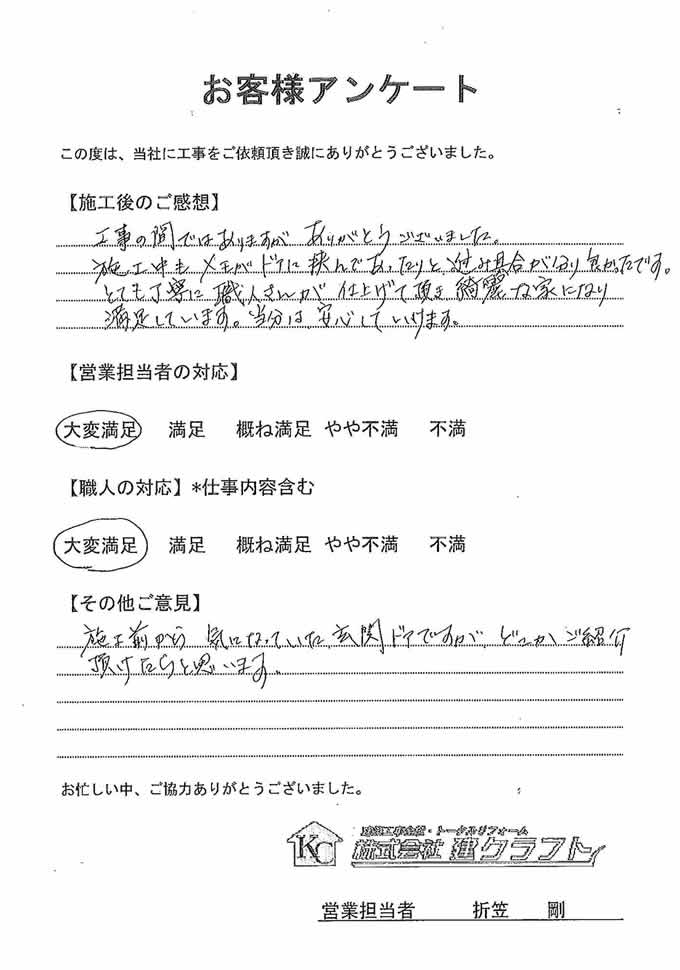 お客様アンケート
この度は、当社に工事をご依頼頂き誠にありがとうございました。
【施工後のご感想】
工事の間ではありますが ありがとうございました。
施工中も メモがドアに挟んであったりと、進み具合がわかり良かったです。
とても丁寧に 職人さんが 仕上げて頂き 綺麗な家になり
満足しています。当分は 安心していけます。
【営業担当者の対応】
大変満足 満足 概ね満足 やや不満 不満
【職人の対応】*仕事内容含む
大変満足 満足 概ね満足 やや不満 不満
【その他ご意見】
施工前から 気になっていた、玄関ドアですが、どこかご紹介
頂けたらと思います。
お忙しい中、ご協力ありがとうございました。
KC 建設工事全般・トータルリフォーム
株式会社 建クラフト
営業担当者 折笠 剛